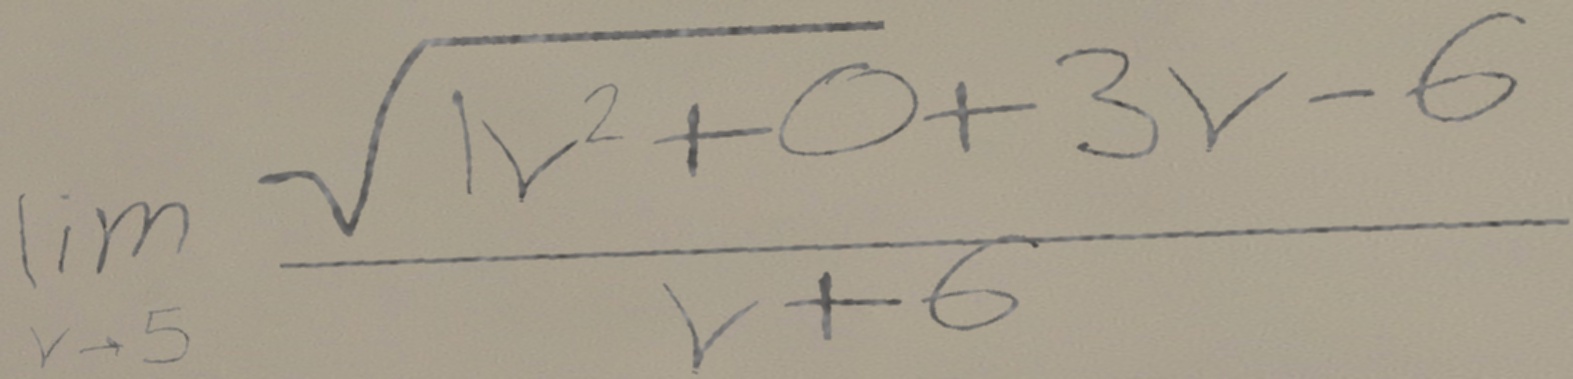 \lim_{v \to 5} \frac{\sqrt{1v^2+0}+3v-6}{v+6}